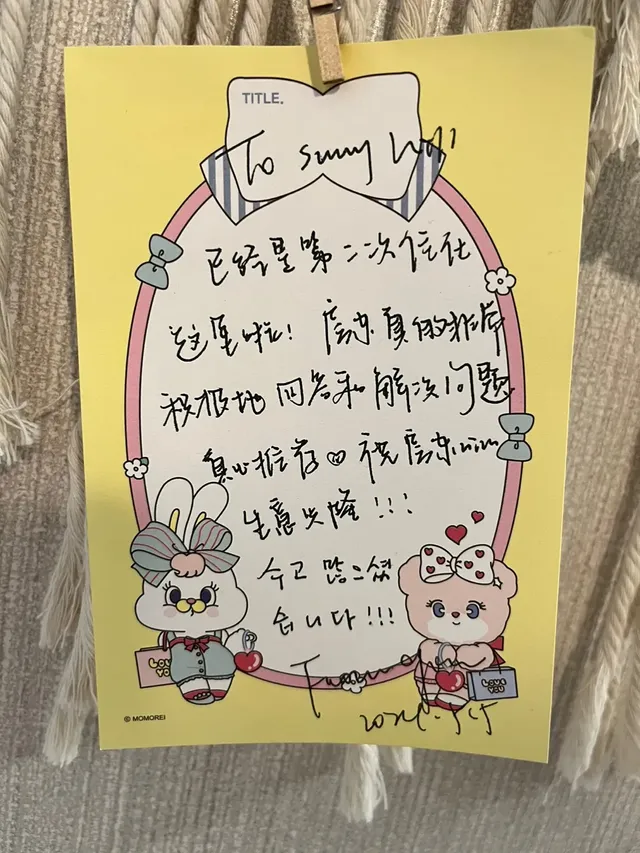 TITLE.
To sunny
已经是第二次住在
这里啦! 房东真的非常
积极地回答和解决问题
真心推荐♡祝房东nim
生意兴隆!!!
수고 많으셨
습니다!!!
LOVE YOU
LOVE YOU
© MOMOREI